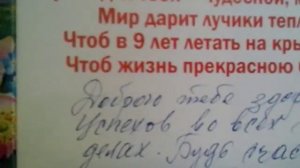 чудесной,
Мир дарит лучики тепл
Чтоб в 9 лет летать на кры
Чтоб жизнь прекрасною
Доброго тебе здор
Успехов во всех
делах. Будь счас